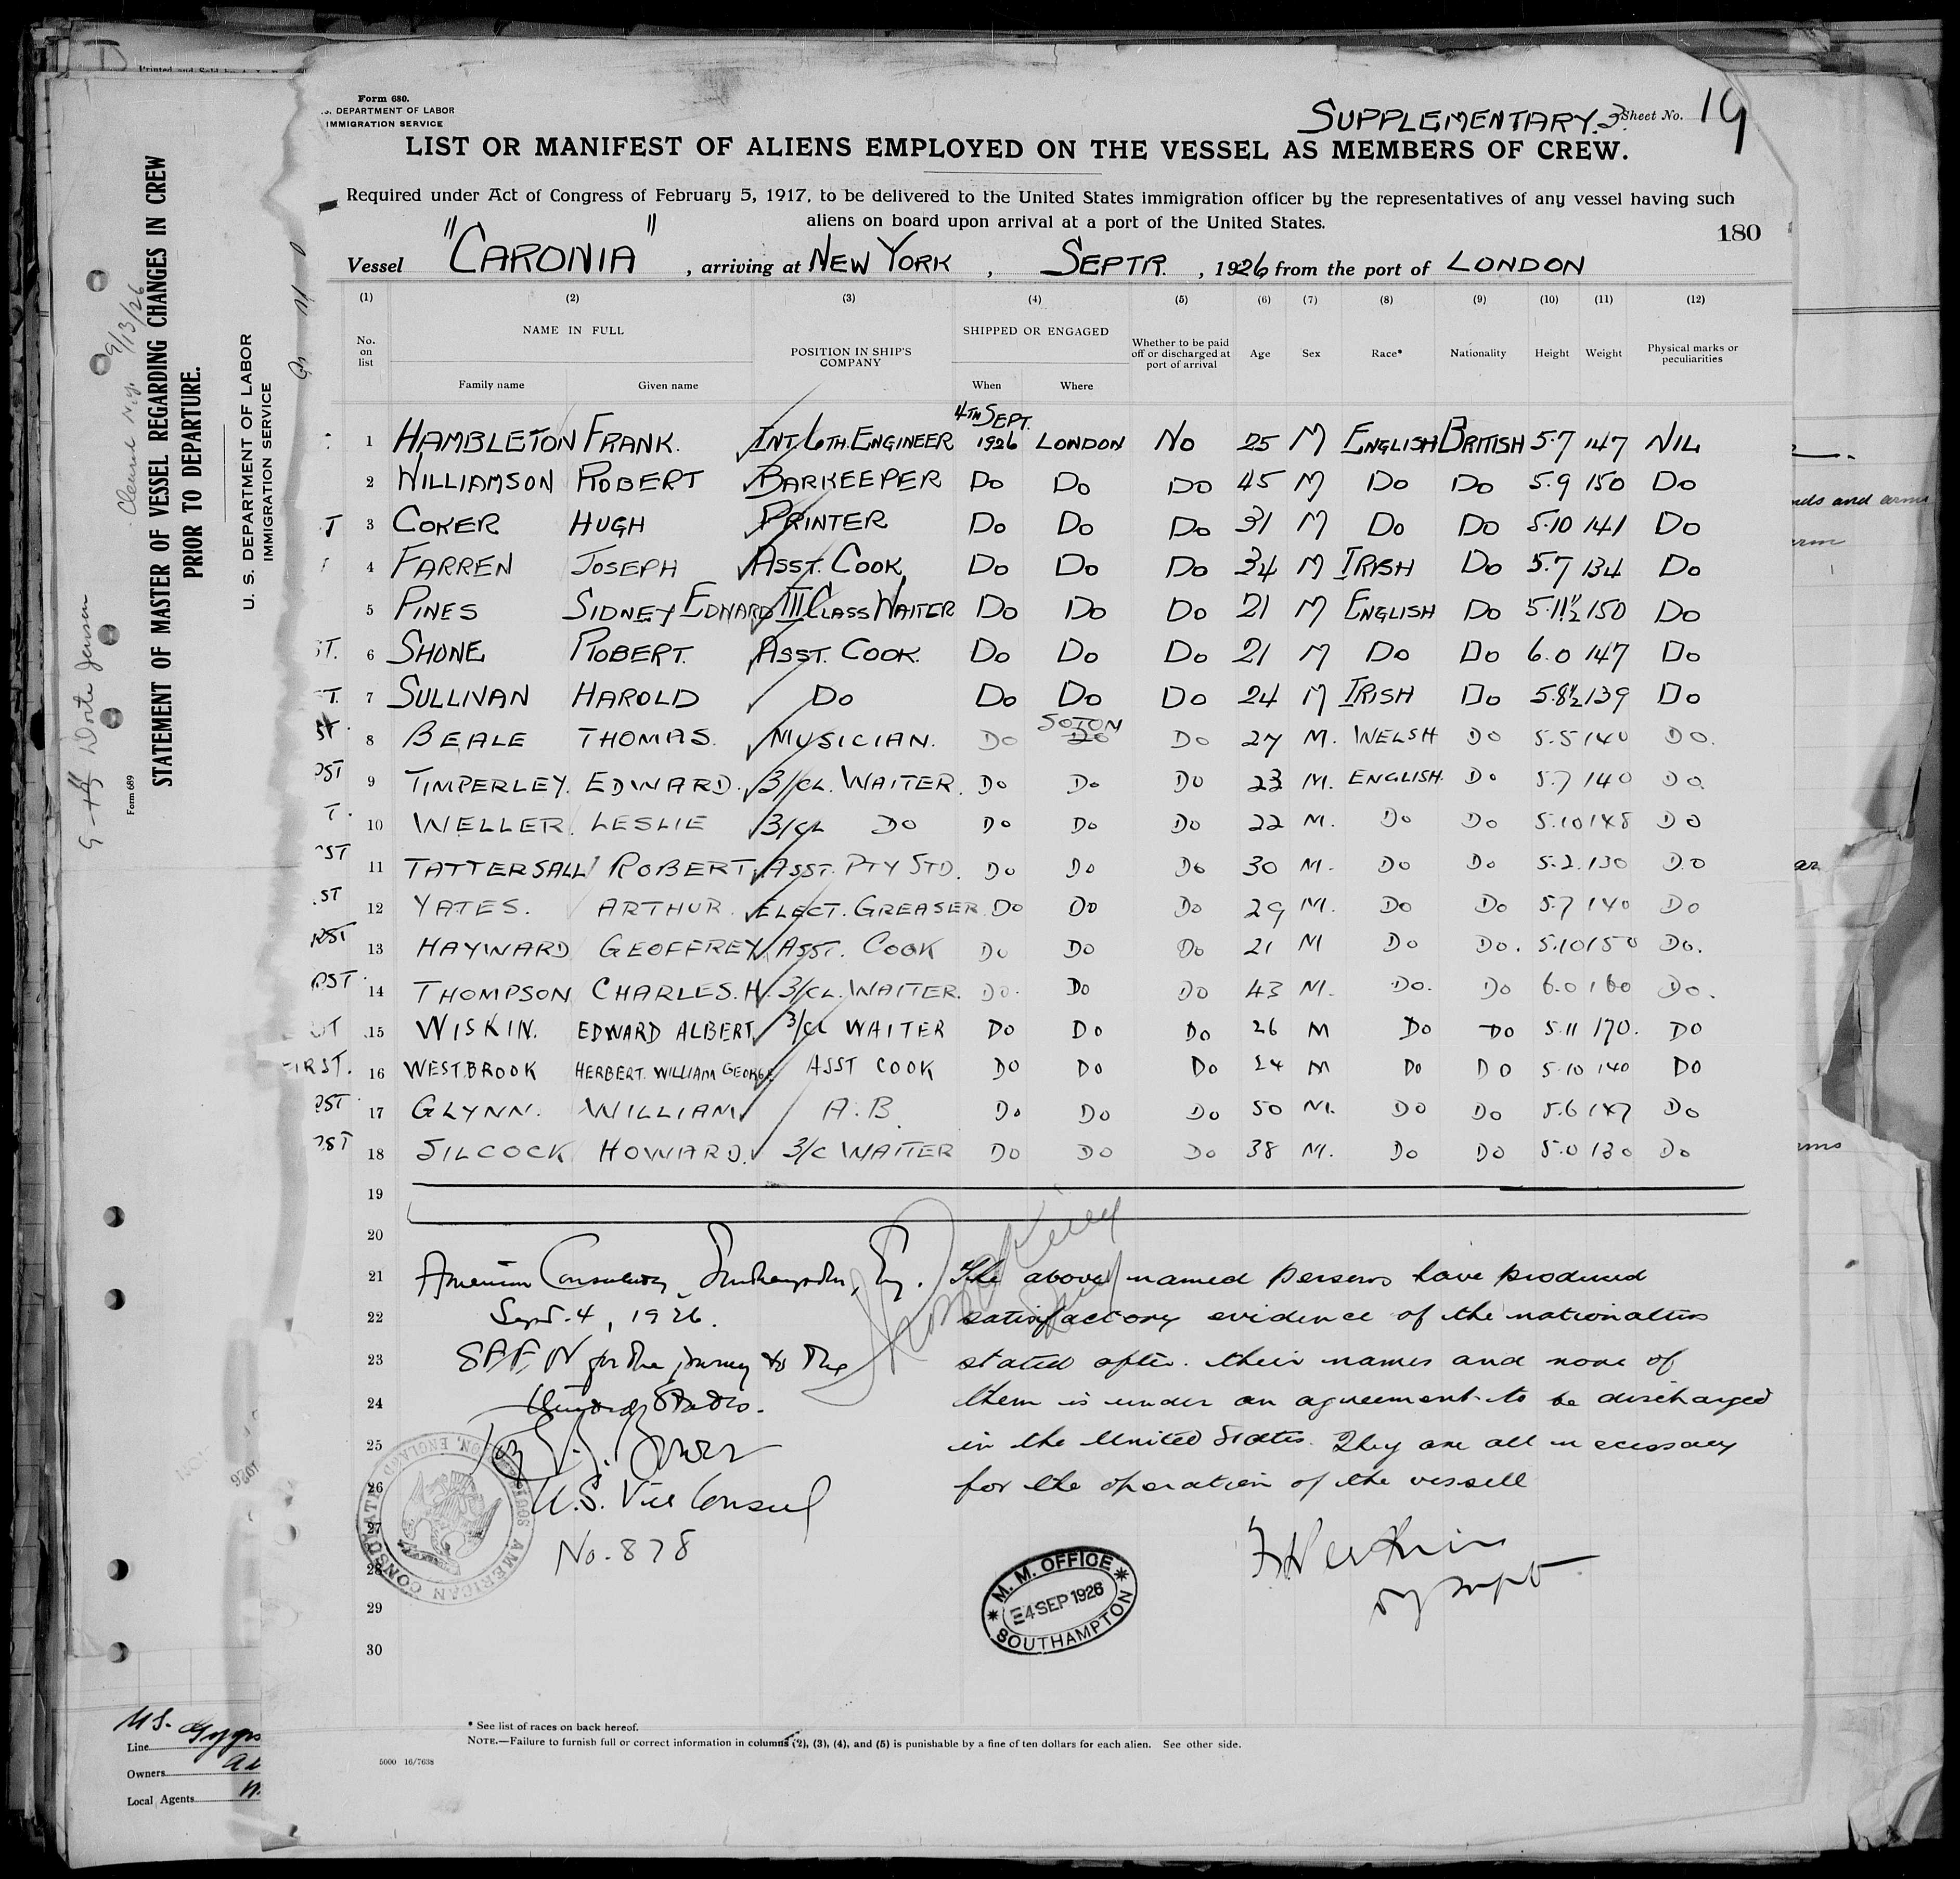 Form 680.
DEPARTMENT OF LABOR
IMMIGRATION SERVICE
SUPPLEMENTARY. 3 Sheet No. 19
LIST OR MANIFEST OF ALIENS EMPLOYED ON THE VESSEL AS MEMBERS OF CREW.
Required under Act of Congress of February 5, 1917, to be delivered to the United States immigration officer by the representatives of any vessel having such
aliens on board upon arrival at a port of the United States.
180
Vessel "CARONIA", arriving at NEW YORK, SEPTR., 1926 from the port of LONDON
(1) (2) (3) (4) (5) (6) (7) (8) (9) (10) (11) (12)
No. on list NAME IN FULL Family name Given name POSITION IN SHIP'S COMPANY SHIPPED OR ENGAGED When Where Whether to be paid off or discharged at port of arrival Age Sex Race* Nationality Height Weight Physical marks or peculiarities
1 HAMBLETON FRANK. INT. 6TH. ENGINEER 4TH SEPT. 1926 LONDON NO 25 M ENGLISH BRITISH 5.7 147 NIL
2 WILLIAMSON ROBERT BARKEEPER DO DO DO 45 M DO DO 5.9 150 DO
T 3 COKER HUGH PRINTER DO DO DO 31 M DO DO 5.10 141 DO
4 FARREN JOSEPH ASST. COOK DO DO DO 34 M IRISH DO 5.7 134 DO
5 PINES SIDNEY EDWARD III CLASS WAITER DO DO DO 21 M ENGLISH DO 5.11½ 150 DO
ST. 6 SHONE ROBERT. ASST. COOK. DO DO DO 21 M DO DO 6.0 147 DO
T. 7 SULLIVAN HAROLD DO DO DO DO 24 M IRISH DO 5.8½ 139 DO
ST. 8 BEALE THOMAS. MUSICIAN. DO SOTON DO DO 27 M. WELSH DO 5.5 140 DO.
ST 9 TIMPERLEY. EDWARD. 3/CL. WAITER. DO DO DO 23 M. ENGLISH. DO 5.7 140 DO.
T. 10 WELLER. LESLIE 3/CL DO DO DO DO 22 M. DO DO 5.10 148 DO
ST 11 TATTERSALL ROBERT ASST. PTY STD. DO DO DO 30 M. DO DO 5.2. 130 DO
ST 12 YATES. ARTHUR. ELECT. GREASER. DO DO DO 29 M. DO DO 5.7 140 DO
RST 13 HAYWARD GEOFFREY ASST. COOK DO DO DO 21 M DO DO. 5.10 150 DO.
RST. 14 THOMPSON CHARLES. H. 3/CL. WAITER. DO. DO DO 43 M. DO. DO 6.0 160 DO.
ST 15 WISKIN. EDWARD ALBERT. 3/CL WAITER DO DO DO 26 M DO DO 5.11 170. DO
IRST. 16 WESTBROOK HERBERT WILLIAM GEORGE ASST COOK DO DO DO 24 M DO DO 5.10 140 DO
RST 17 GLYNN. WILLIAM A.B DO DO DO 50 M. DO DO 5.6 147 DO
RST 18 SILCOCK HOWARD. 3/C WAITER DO DO DO 38 M. DO DO 5.0 130 DO
19
20
21 American Consulate, Southampton, Eng. The above named persons have produced
22 Sept. 4, 1926. satisfactory evidence of the nationalities
23 for the journey to the stated after their names and none of
24 United States. them is under an agreement to be discharged
25 in the United States. They are all necessary
26 U.S. Vice Consul for the operation of the vessell
27 No. 878
28
29
30
AMERICAN CONSULATE SOUTHAMPTON, ENGLAND
M. M. OFFICE
4 SEP 1926
SOUTHAMPTON
* See list of races on back hereof.
NOTE.—Failure to furnish full or correct information in columns (2), (3), (4), and (5) is punishable by a fine of ten dollars for each alien. See other side.
5000 16/7638
STATEMENT OF MASTER OF VESSEL REGARDING CHANGES IN CREW
PRIOR TO DEPARTURE.
U. S. DEPARTMENT OF LABOR
IMMIGRATION SERVICE
Form 689
9/13/26
Line
Owners
Local Agents